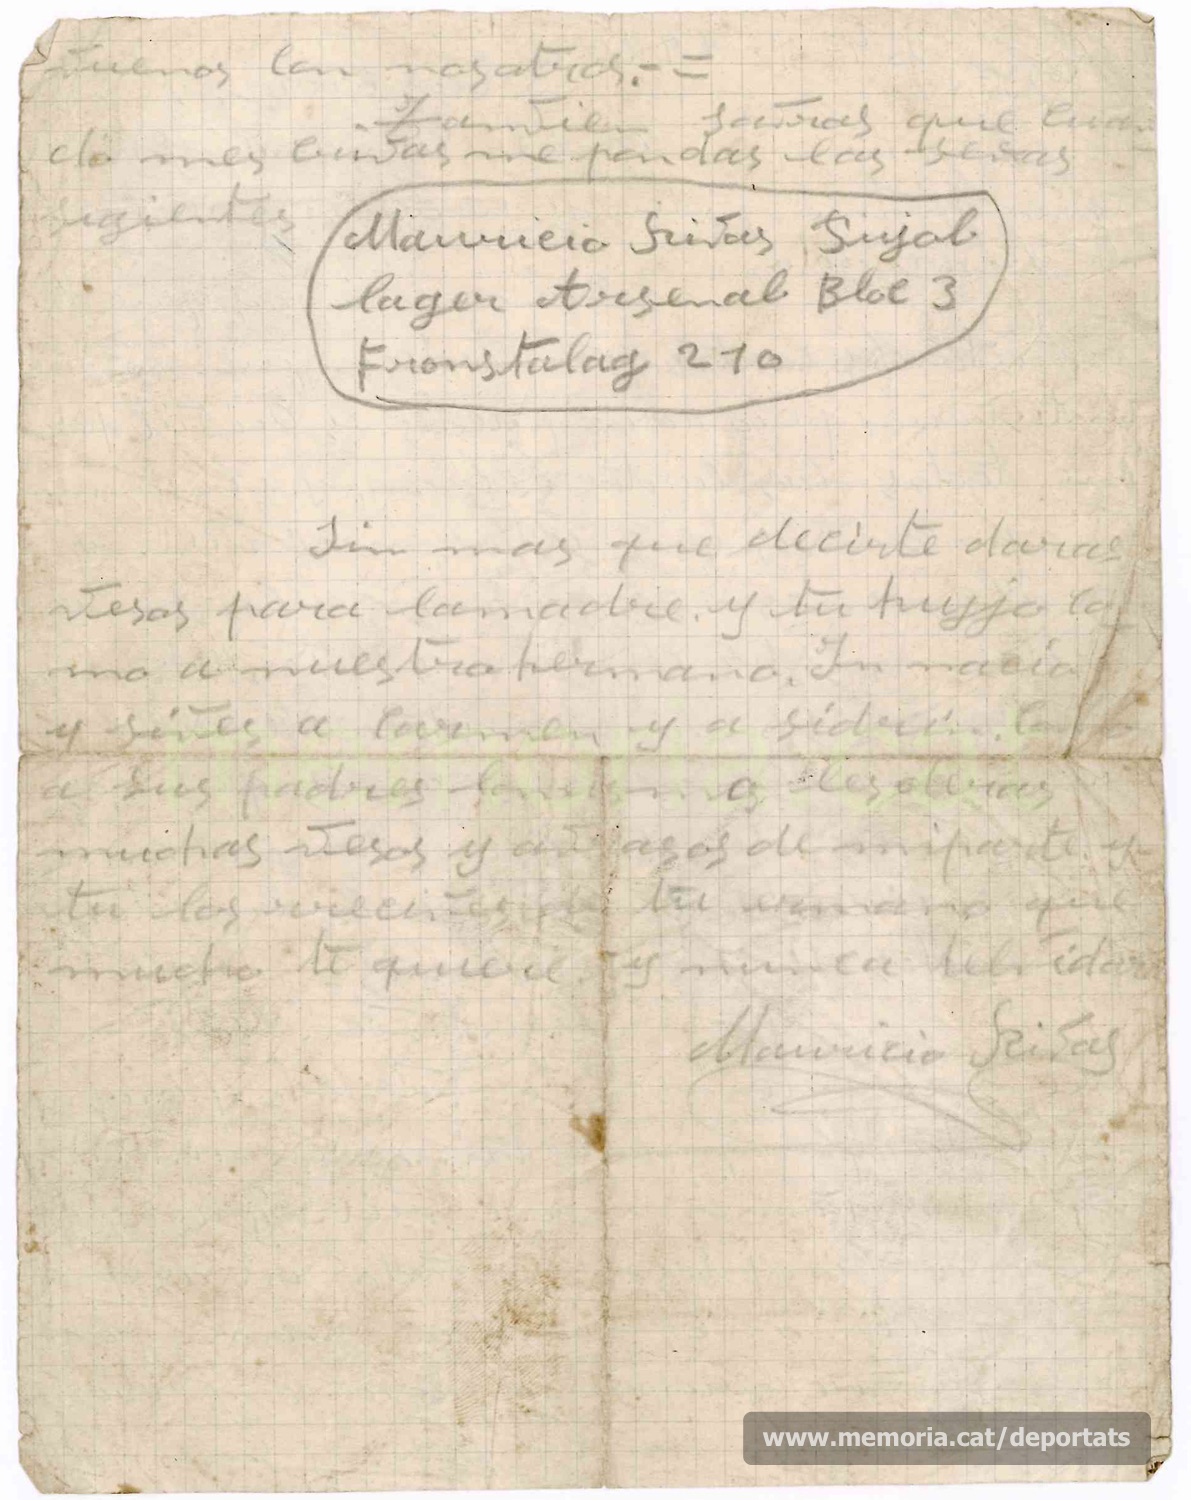 vuenos con nosotros.- =
Tamvien savras que cuan
do mes crivas me pondas las señas
sigientes
Mauricio Privas Pujol
lager Arsenal Bloc 3
Fronstalag 210
Sin mas que decirte daras
vesos para lamadre. y tu huyjo co
mo a nuestrohermano. In nacio
y a Carmen y a como
a sus padres lomismo
muchas vesos y avrasos de miparte. y
tu los recives de tu ermano que
mucho te quiere y nunca telvidara
Mauricio Privas
www.memoria.cat/deportats